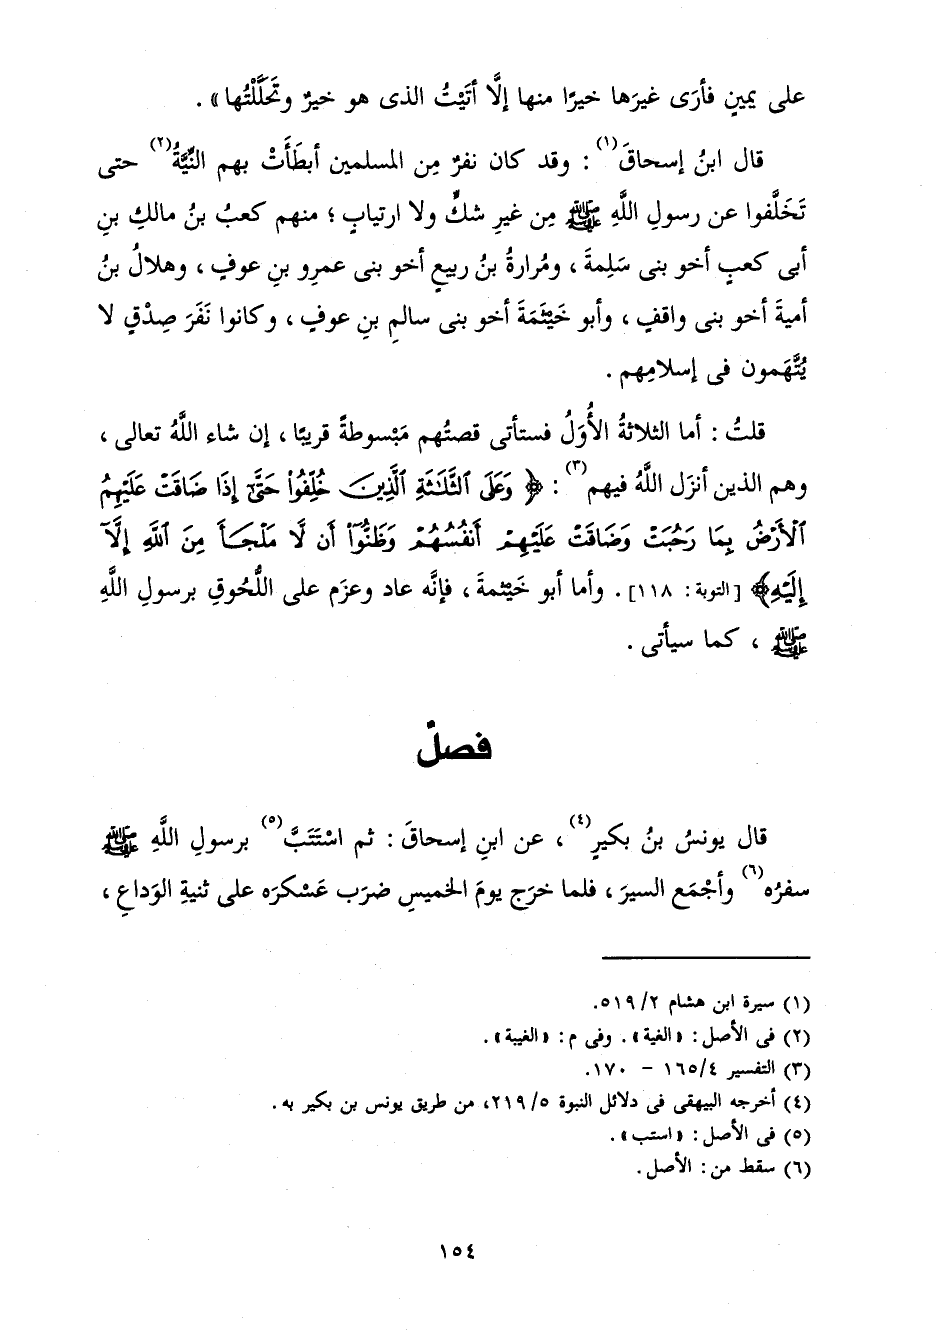 على يمينٍ فأرَى غيرَها خيرًا منها إلَّا أتَيْتُ الذى هو خيرٌ وتحَلَّلْتُها» .
قال ابنُ إسحاقَ(١) : وقد كان نفرٌ مِن المسلمين أبطَأَتْ بهم النِّيَّةُ(٢) حتى
تَخَلَّفوا عن رسولِ اللَّهِ ﷺ مِن غيرِ شكٍّ ولا ارتيابٍ ؛ منهم كعبُ بنُ مالكِ بنِ
أبى كعبٍ أخو بنى سَلِمةَ ، ومُرارةُ بنُ ربيعٍ أخو بنى عمرِو بنِ عوفٍ ، وهلالُ بنُ
أميةَ أخو بنى واقفٍ ، وأبو خَيْثَمَةَ أخو بنى سالمِ بنِ عوفٍ ، وكانوا نَفَرَ صِدْقٍ لا
يُتَّهَمون فى إسلامِهم .
قلتُ : أما الثلاثةُ الأُوَلُ فستأتى قصتُهم مَبْسوطةً قريبًا ، إن شاء اللَّهُ تعالى ،
وهم الذين أنزَل اللَّهُ فيهم(٣) : ﴿ وَعَلَى ٱلثَّلَٰثَةِ ٱلَّذِينَ خُلِّفُوا۟ حَتَّىٰٓ إِذَا ضَاقَتْ عَلَيْهِمُ
ٱلْأَرْضُ بِمَا رَحُبَتْ وَضَاقَتْ عَلَيْهِمْ أَنفُسُهُمْ وَظَنُّوٓا۟ أَن لَّا مَلْجَأَ مِنَ ٱللَّهِ إِلَّآ
إِلَيْهِ﴾ [التوبة : ١١٨] . وأما أبو خَيْثمةَ ، فإنَّه عاد وعزَم على اللُّحوقِ برسولِ اللَّهِ
ﷺ ، كما سيأتى .
فصلٌ
قال يونسُ بنُ بكيرٍ(٤) ، عن ابنِ إسحاقَ : ثم اسْتَتَبَّ(٥) برسولِ اللَّهِ ﷺ
سفرُه(٦) وأجْمَع السيرَ ، فلما خرَج يومَ الخميسِ ضرَب عَسْكرَه على ثنيةِ الوَداعِ ،
(١) سيرة ابن هشام ٥١٩/٢.
(٢) فى الأصل : «الغية» . وفى م : «الغيبة» .
(٣) التفسير ١٦٥/٤ – ١٧٠.
(٤) أخرجه البيهقى فى دلائل النبوة ٢١٩/٥، من طريق يونس بن بكير به .
(٥) فى الأصل : «استب» .
(٦) سقط من : الأصل .
١٥٤